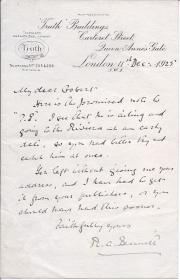 "Truth" Buildings,
Carteret Street,
Queen Anne's Gate,
London 11th Dec: 1925
S.W.1.
Truth
My dear
Here is the promised note to
"T.P." I see that he is ailing and
going to the Riviera at an early
date, so you had better try and
catch him at once.
You left without giving me your
address, and I have had to get
it from your publishers, or you
should have had this sooner.
Faithfully yours
R. A. Bennett